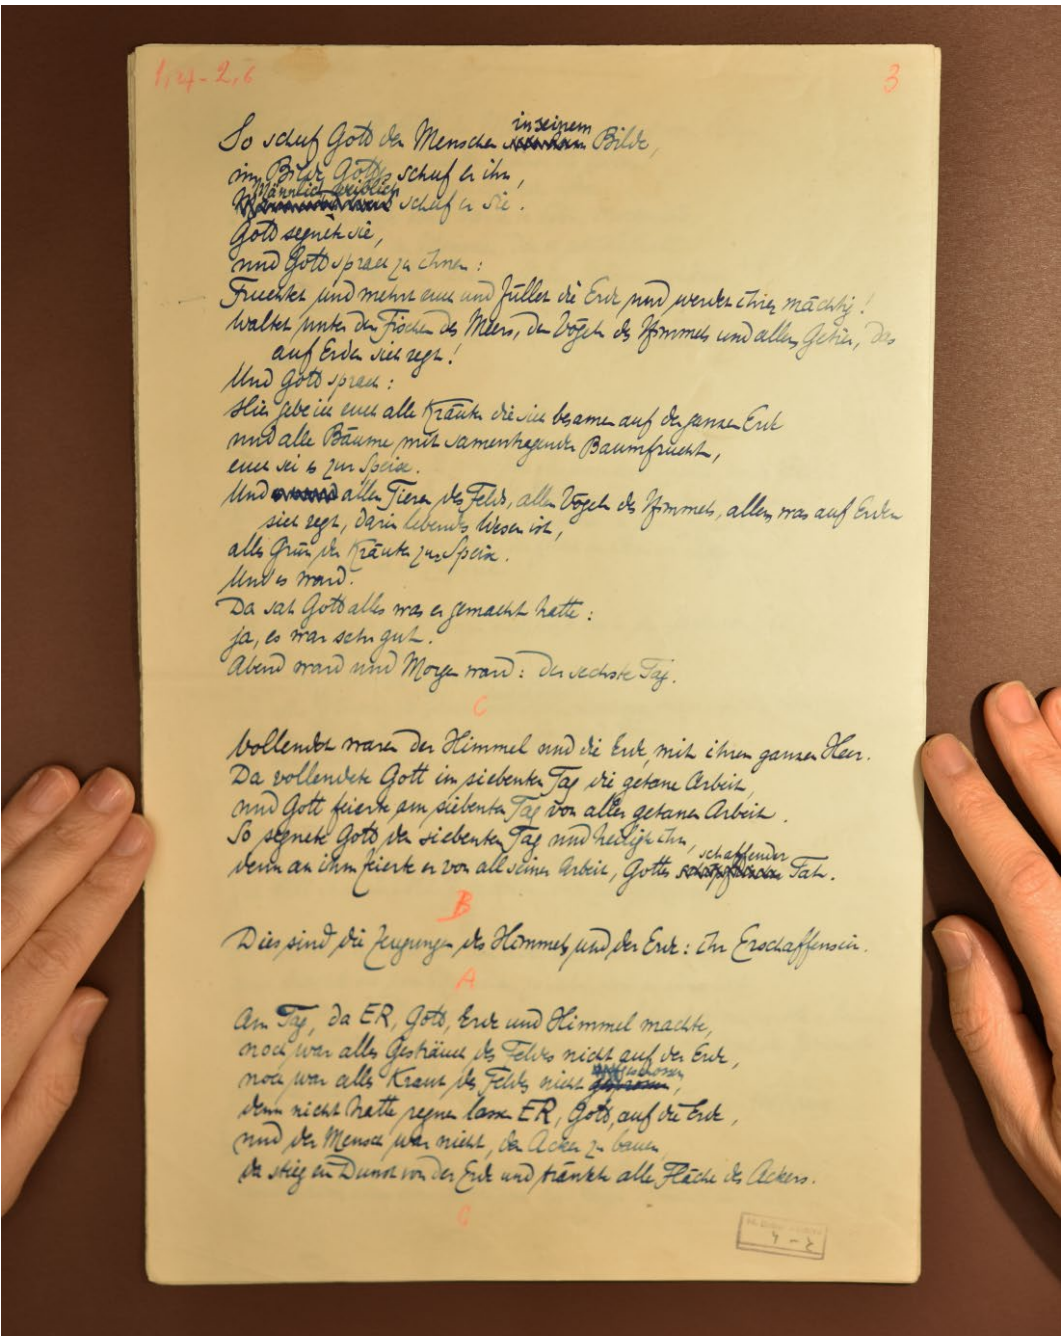 1,27-2,6
3
So schuf Gott den Menschen in seinem Bilde,
im Bilde Gottes schuf er ihn,
Männlich weiblich schuf er sie.
Gott segnete sie,
und Gott sprach zu ihnen:
Fruchtet und mehrt euch und füllet die Erde und werdet ihrer mächtig!
Waltet unter den Fischen des Meers, den Vögeln des Himmels und allem Getier, das
auf Erden sich regt!
Und Gott sprach:
Hier gebe ich euch alle Kräuter die sich besamen auf der ganzen Erde
und alle Bäume mit samentragender Baumfrucht,
euch sei es zur Speise.
Und allen Tieren des Felds, allen Vögeln des Himmels, allem, was auf Erden
sich regt, darin lebendes Wesen ist,
alles Grün der Kräuter zur Speise.
Und es ward.
Da sah Gott alles was er gemacht hatte:
ja, es war sehr gut.
Abend ward und Morgen ward: der sechste Tag.
C
Vollendet waren der Himmel und die Erde, mit ihrem ganzen Heer.
Da vollendete Gott im siebenten Tag die getane Arbeit,
und Gott feierte am siebenten Tag von aller getanen Arbeit.
So segnete Gott den siebenten Tag und heiligte ihn,
denn an ihm feierte er von all seiner Arbeit, Gottes schaffender Tat.
B
Dies sind die Zeugungen des Himmels und der Erde: ihr Erschaffensein.
A
Am Tag, da ER, Gott, Erde und Himmel machte,
noch war alles Gesträuch des Feldes nicht auf der Erde,
noch war alles Kraut des Felds nicht aufgeschossen,
denn nicht hatte regnen lassen ER, Gott, auf die Erde,
und der Mensch war nicht, den Acker zu bauen,
da stieg ein Dunst von der Erde und tränkte alle Fläche des Ackers.